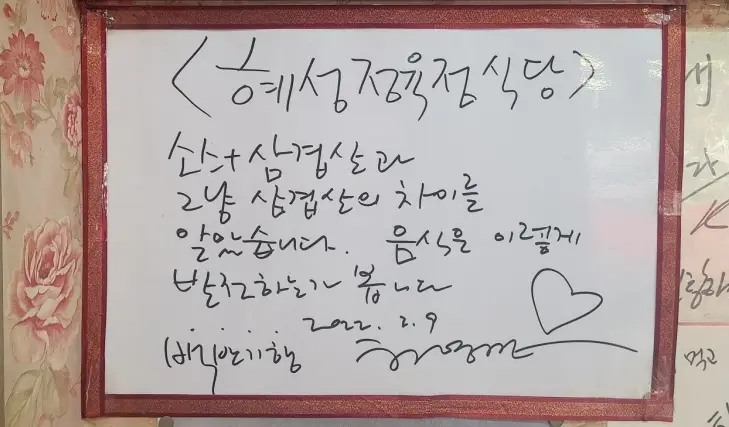 <혜성정육점식당>
소스+ 삼겹살과
그냥 삼겹살의 차이를
알았습니다. 음식은 이렇게
발전하는가 봅니다
2022. 2. 9
백반기행 허영만
먹고